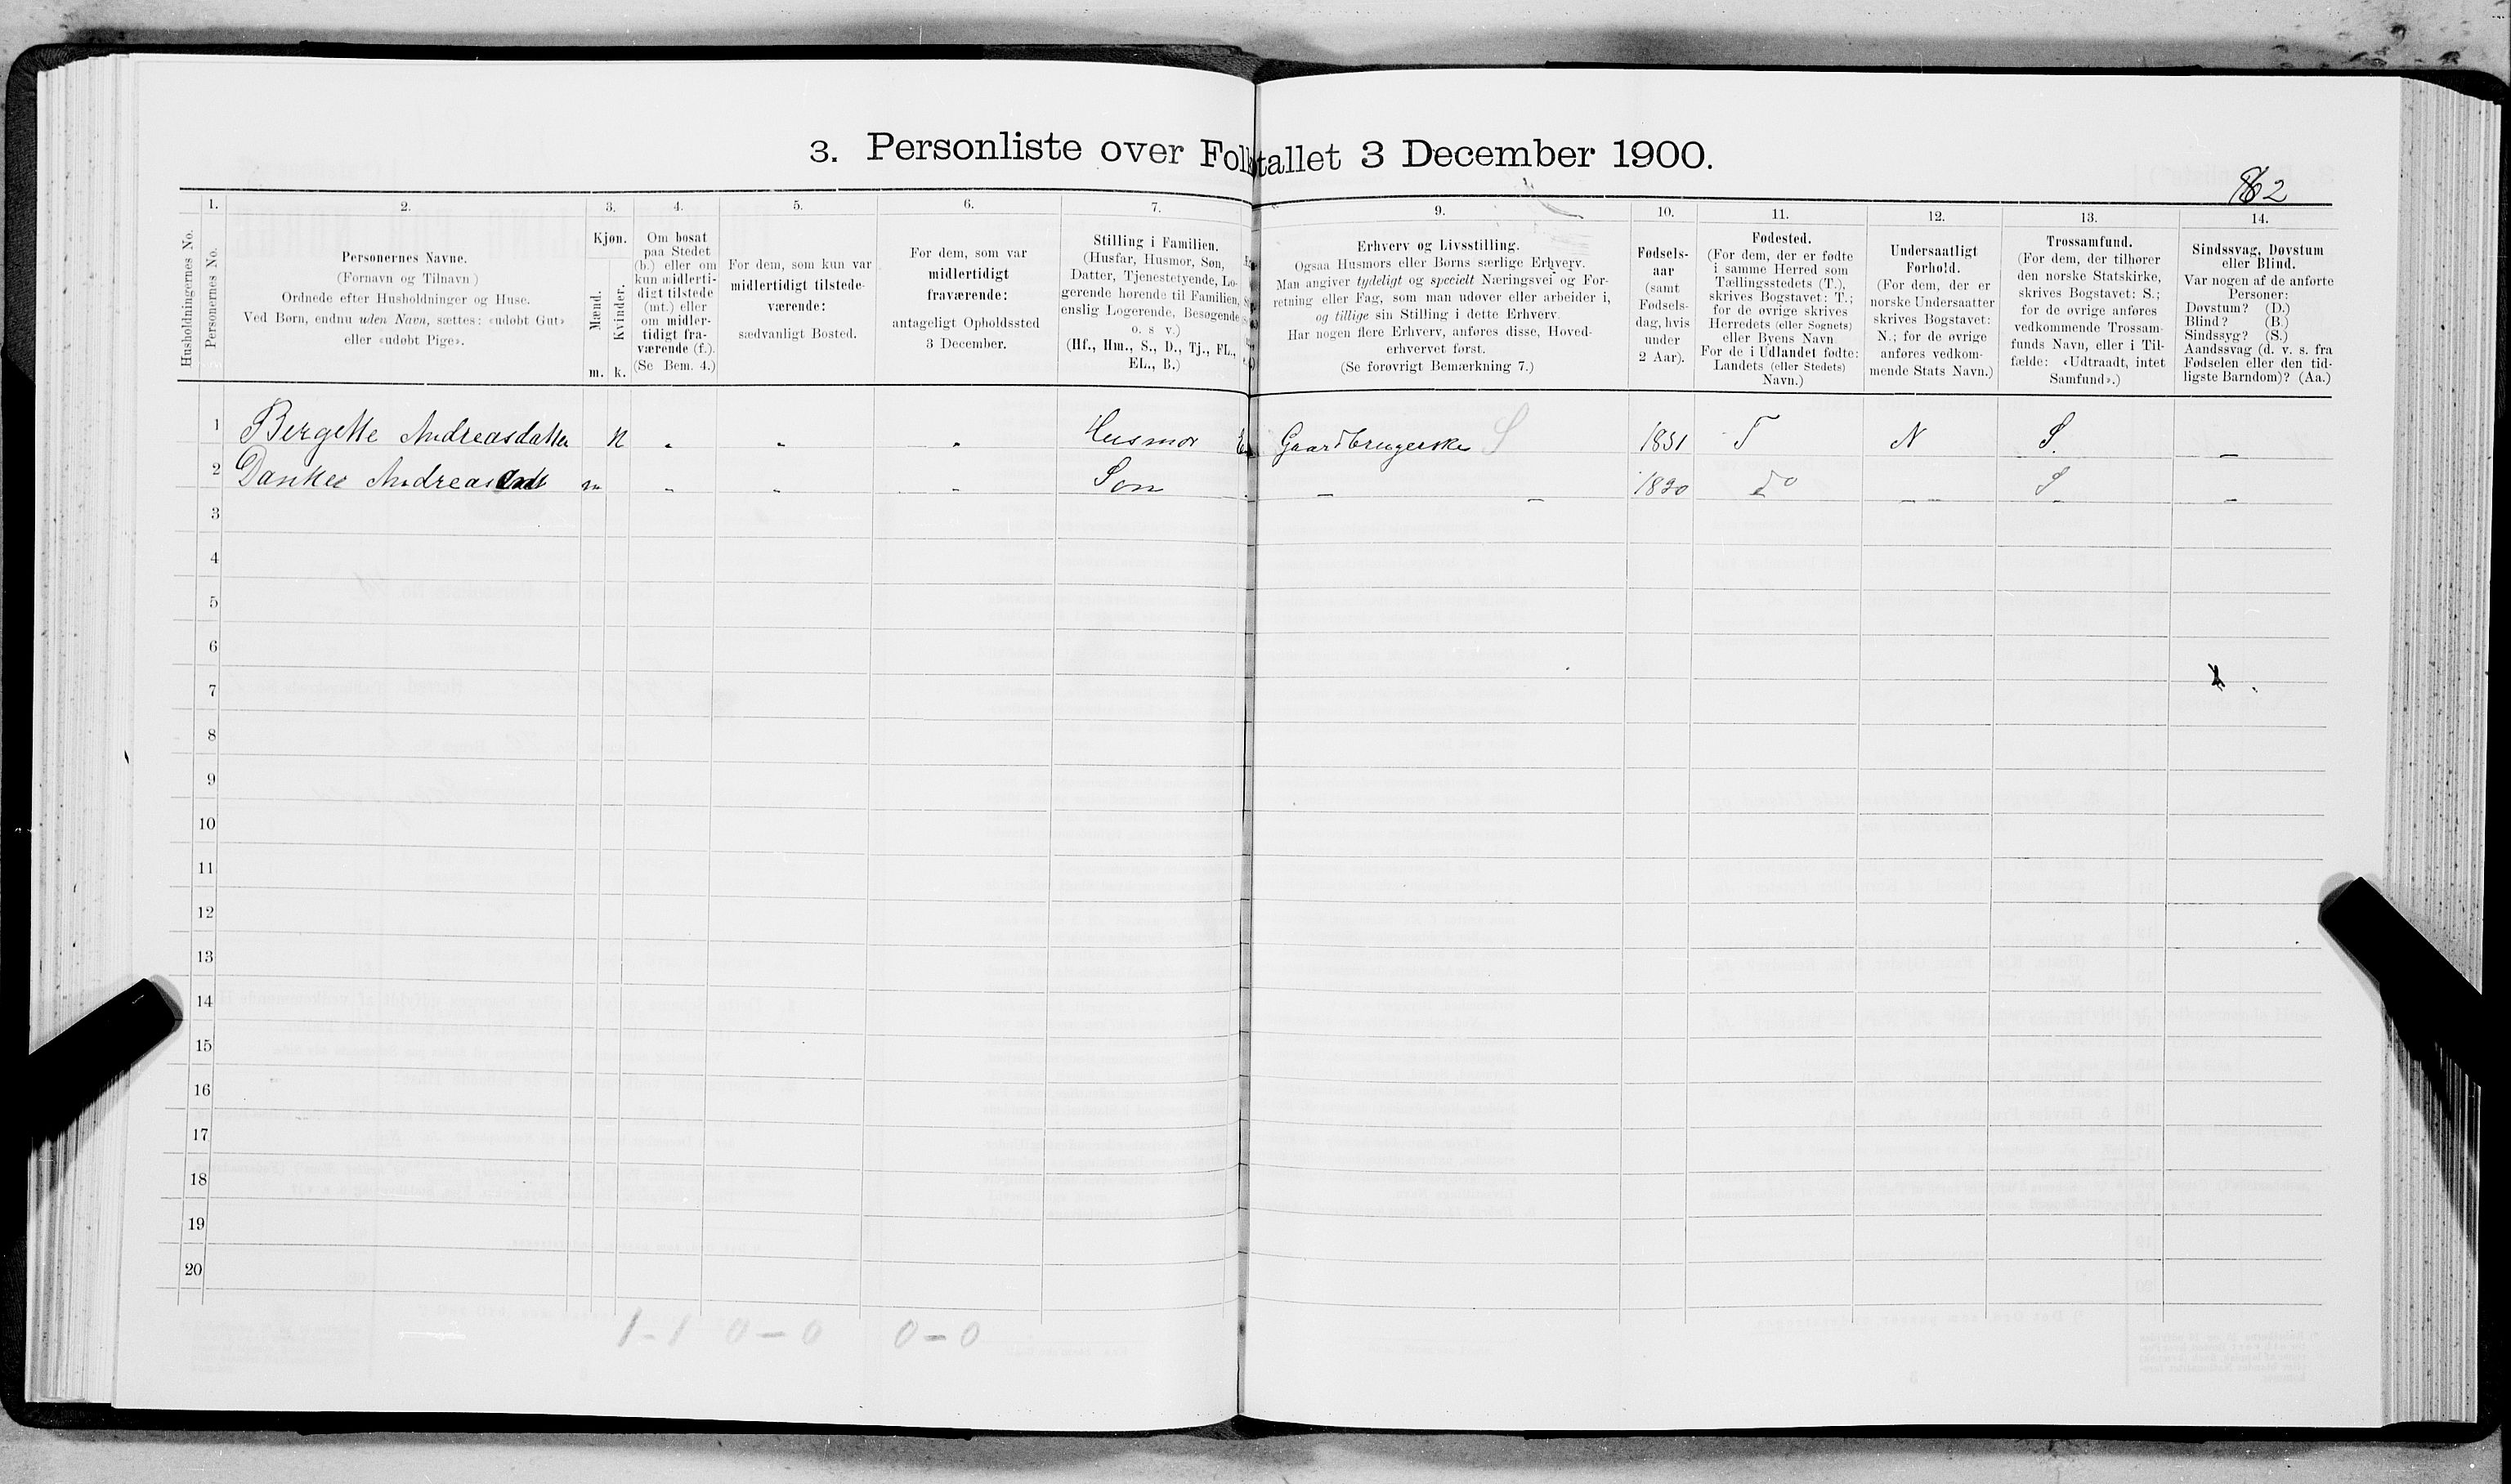 3. Personliste over Folketallet 3 December 1900.
82
1. 2. 3. 4. 5. 6. 7. 9. 10. 11. 12. 13. 14.
Husholdningernes No.
Personernes No.
Personernes Navne.
(Fornavn og Tilnavn)
Ordnede efter Husholdninger og Huse.
Ved Børn, endnu uden Navn, sættes: «udøbt Gut»
eller «udøbt Pige».
Kjøn.
Mænd.
Kvinder.
m. k.
Om bosat
paa Stedet
(b.) eller om
kun midlerti-
digt tilstede
(mt.) eller
om midler-
tidigt fra-
værende (f.).
(Se Bem. 4.)
For dem, som kun var
midlertidigt tilstede-
værende:
sædvanligt Bosted.
For dem, som var
midlertidigt
fraværende:
antageligt Opholdssted
3 December.
Stilling i Familien.
(Husfar, Husmor, Søn,
Datter, Tjenestetyende, Lo-
gerende hørende til Familien,
enslig Logerende, Besøgende
o. s v.)
(Hf., Hm., S., D., Tj., FL.,
EL., B.)
Erhverv og Livsstilling.
Ogsaa Husmors eller Børns særlige Erhverv.
Man angiver tydeligt og specielt Næringsvei og For-
retning eller Fag, som man udøver eller arbeider i,
og tillige sin Stilling i dette Erhverv.
Har nogen flere Erhverv, anføres disse, Hoved-
erhvervet først.
(Se forøvrigt Bemærkning 7.)
Fødsels-
aar
(samt
Fødsels-
dag, hvis
under
2 Aar).
Fødested.
(For dem, der er fødte
i samme Herred som
Tællingsstedets (T.),
skrives Bogstavet: T.;
for de øvrige skrives
Herredets (eller Sognets)
eller Byens Navn
For de i Udlandet fødte:
Landets (eller Stedets)
Navn.)
Undersaatligt
Forhold.
(For dem, der er
norske Undersaatter
skrives Bogstavet:
N.; for de øvrige
anføres vedkom-
mende Stats Navn.)
Trossamfund.
(For dem, der tilhører
den norske Statskirke,
skrives Bogstavet: S.;
for de øvrige anføres
vedkommende Trossam-
funds Navn, eller i Til-
fælde: «Udtraadt, intet
Samfund».)
Sindssvag, Døvstum
eller Blind.
Var nogen af de anførte
Personer:
Døvstum? (D.)
Blind? (B.)
Sindssyg? (S.)
Aandssvag (d. v. s. fra
Fødselen eller den tid-
ligste Barndom)? (Aa.)
1 Bergette Andreasdatter k " " " Husmor E Gaardbrugerske S 1851 T N S. –
2 m " " " Søn – – do – – S –
3
4
5
6
7
8
9
10
11
12
13
14
15
16
17
18
19
20
1-1 0-0 0-0